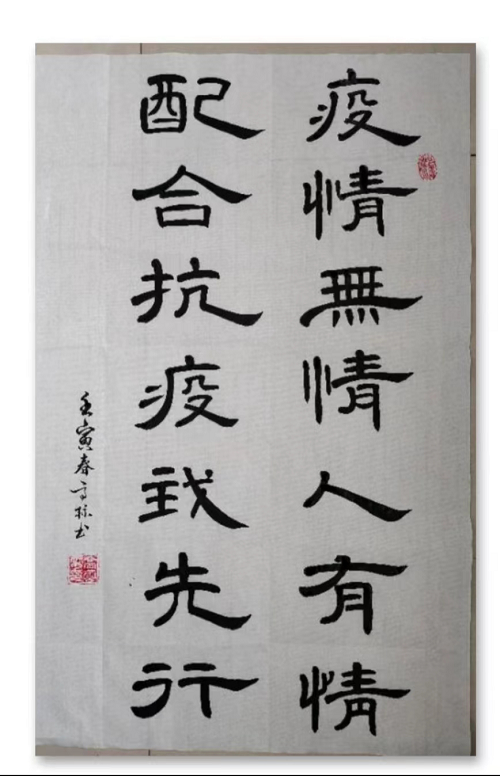 疫情無情人有情
配合抗疫我先行
壬寅春高标书